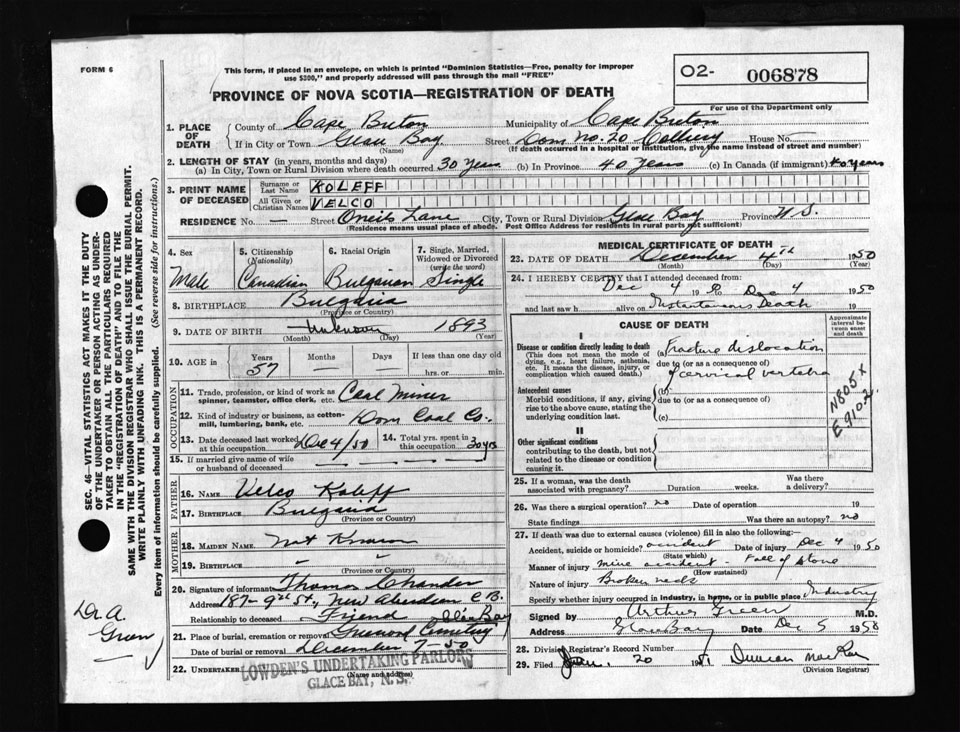 FORM 6
This form, if placed in an envelope, on which is printed "Dominion Statistics—Free, penalty for improper
use $300," and properly addressed will pass through the mail "FREE"
PROVINCE OF NOVA SCOTIA—REGISTRATION OF DEATH
O2- 006878
For use of the Department only
1. PLACE OF DEATH
County of Cape Breton Municipality of Cape Breton
If in City or Town Glace Bay Street Dom No. 20 Colliery House No. —
(Name) (If death occurred in a hospital or institution, give the name instead of street and number)
2. LENGTH OF STAY (in years, months and days)
(a) In City, Town or Rural Division where death occurred 30 Years (b) In Province 40 Years (c) In Canada (if immigrant) 40 years
3. PRINT NAME OF DECEASED
Surname or Last Name KOLEFF
All Given or Christian Names VELCO
RESIDENCE No. — Street Oneils Lane City, Town or Rural Division Glace Bay Province N S.
(Residence means usual place of abode. Post Office Address for residents in rural parts not sufficient)
4. Sex Male
5. Citizenship (Nationality) Canadian
6. Racial Origin Bulgarian
7. Single, Married, Widowed or Divorced (write the word) Single
8. BIRTHPLACE Bulgaria
(Province or Country)
9. DATE OF BIRTH Unknown 1893
(Month) (Day) (Year)
10. AGE in Years 57 Months — Days — If less than one day old
hrs. or min.
OCCUPATION
11. Trade, profession, or kind of work as spinner, teamster, office clerk, etc. Coal Miner
12. Kind of industry or business, as cotton-mill, lumbering, bank, etc. Dom Coal Co.
13. Date deceased last worked at this occupation Dec 4/50 14. Total yrs. spent in this occupation 30 yrs
15. If married give name of wife or husband of deceased — — — — —
FATHER
16. NAME Velco Koleff
17. BIRTHPLACE Bulgaria
(Province or Country)
MOTHER
18. MAIDEN NAME Not Known
19. BIRTHPLACE — —
(Province or Country)
20. Signature of informant Thomas Chander
Address 187-9th St., New Aberdeen C.B.
Relationship to deceased Friend Glace Bay
21. Place of burial, cremation or removal Greenwood Cemetery
Date of burial or removal December 7-50
22. UNDERTAKER LOWDEN'S UNDERTAKING PARLORS
(Name and address)
GLACE BAY, N.S.
MEDICAL CERTIFICATE OF DEATH
23. DATE OF DEATH December 4th 1950
(Month) (Day) (Year)
24. I HEREBY CERTIFY that I attended deceased from:
Dec 4 1950 to Dec 4 1950
and last saw h alive on Instantaneous Death 19
CAUSE OF DEATH
Approximate interval between onset and death
I
Disease or condition directly leading to death
(This does not mean the mode of dying, e.g., heart failure, asthenia, etc. It means the disease, injury, or complication which caused death.)
(a) Fracture dislocation
due to (or as a consequence of)
of cervical vertebra
Antecedent causes
Morbid conditions, if any, giving rise to the above cause, stating the underlying condition last.
(b)
due to (or as a consequence of)
(c)
N805X
E910.2
II
Other significant conditions
contributing to the death, but not related to the disease or condition causing it.
25. If a woman, was the death associated with pregnancy? Duration weeks. Was there a delivery?
26. Was there a surgical operation? no Date of operation 19
State findings Was there an autopsy? no
27. If death was due to external causes (violence) fill in also the following:
Accident, suicide or homicide? accident Date of injury Dec 4 1950
(State which)
Manner of injury mine accident - Fall of stone
(How sustained)
Nature of injury Broken neck
Specify whether injury occurred in industry, in home, or in public place Industry
Signed by Arthur Green M.D.
Address Glace Bay Date Dec 5 1950
28. Division Registrar's Record Number
29. Filed Jan. 20 1951 Duncan MacKay
(Division Registrar)
SEC. 46—VITAL STATISTICS ACT MAKES IT THE DUTY
OF THE UNDERTAKER OR PERSON ACTING AS UNDER-
TAKER TO OBTAIN ALL THE PARTICULARS REQUIRED
IN THE "REGISTRATION OF DEATH" AND TO FILE THE
SAME WITH THE DIVISION REGISTRAR WHO SHALL ISSUE THE BURIAL PERMIT.
WRITE PLAINLY WITH UNFADING INK. THIS IS A PERMANENT RECORD.
Every item of information should be carefully supplied. (See reverse side for instructions.)
Dr. A.
Green